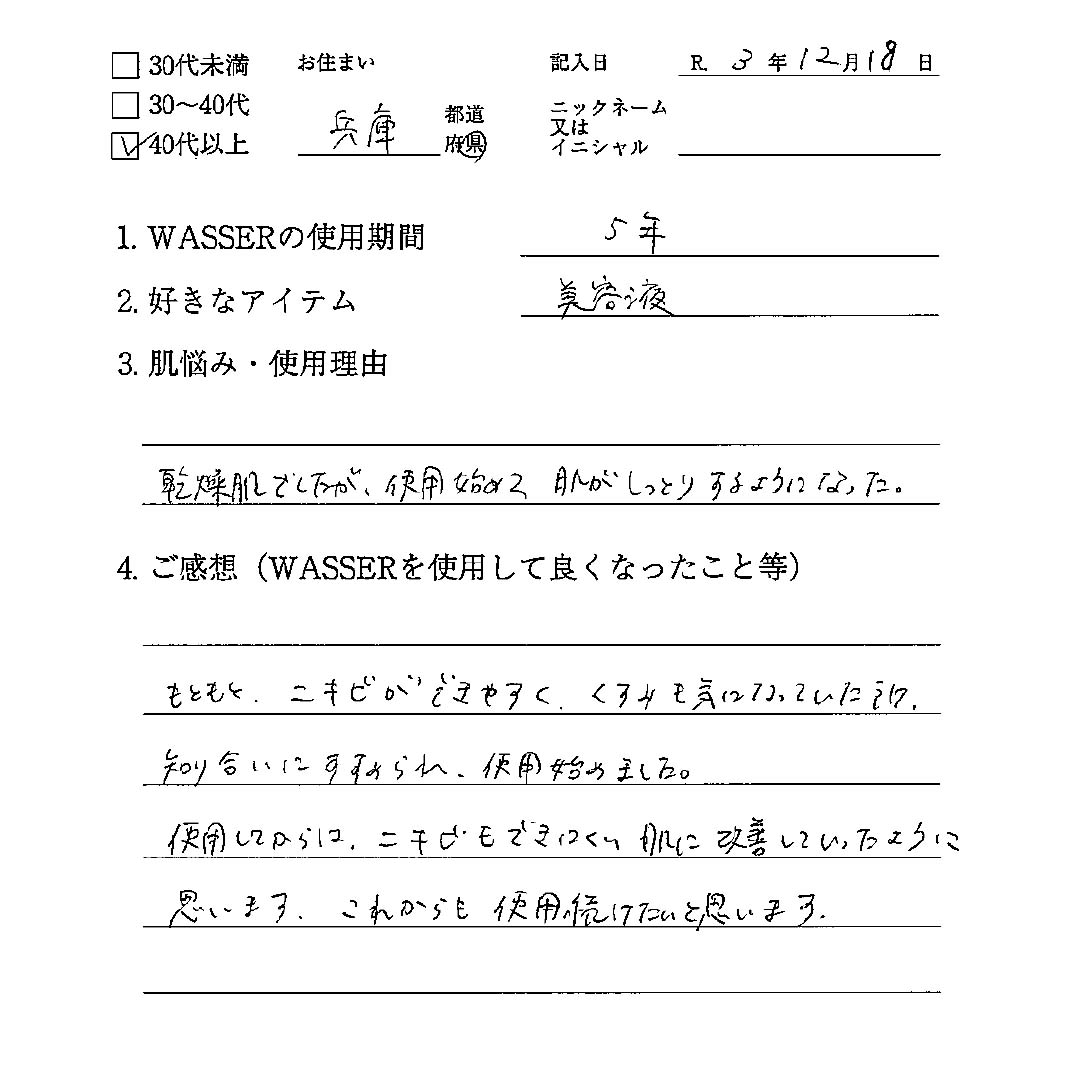 30代未満 お住まい 記入日 R. 3年12月18日
30〜40代 兵庫 都道府県 ニックネーム又はイニシャル
40代以上
1. WASSERの使用期間 5年
2. 好きなアイテム 美容液
3. 肌悩み・使用理由
乾燥肌でしたが、使用始めて 肌がしっとりするようになった。
4. ご感想（WASSERを使用して良くなったこと等）
もともと、ニキビができやすく、くすみも気になっていた
知り合いにすすめられ、使用始めました。
使用してからは、ニキビもできにくい肌に改善していったように
思います、これからも使用続けたいと思います。